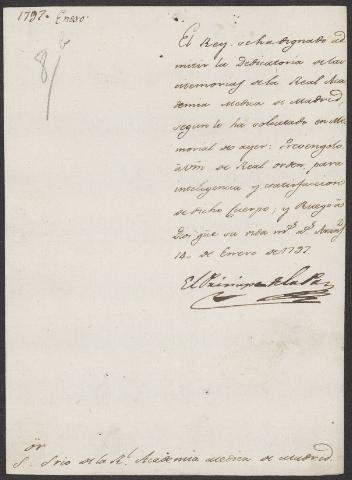 1797. Enero.
8
El Rey se ha dignado ad
mitir la Dedicatoria de las
memorias de la Real Aca
demia Medica de Madrid,
segun lo ha solicitado en Me
morial de ayer: Prevengolo
à Vm de Real orden, para
inteligencia y satisfaccion
de dicho Cuerpo; y Ruego à
Dios gue su vida ms. as.
14 de Enero de 1797.
El Principe de la Paz
Sor
S. Srio de la Rl. Academia Medica de Madrid.